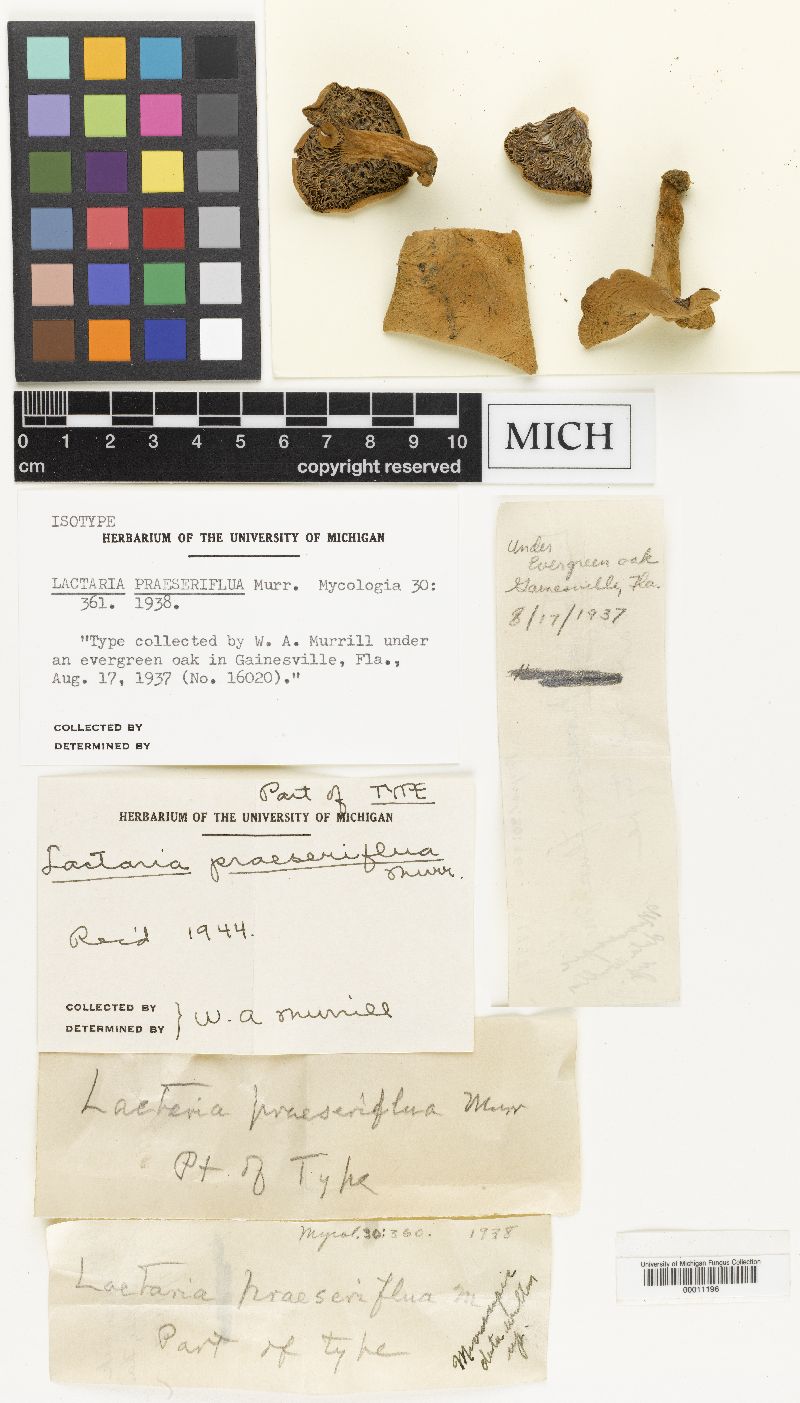 0 1 2 3 4 5 6 7 8 9 10
cm copyright reserved
MICH
ISOTYPE
HERBARIUM OF THE UNIVERSITY OF MICHIGAN
LACTARIA PRAESERIFLUA Murr. Mycologia 30:
361. 1938.
"Type collected by W. A. Murrill under
an evergreen oak in Gainesville, Fla.,
Aug. 17, 1937 (No. 16020)."
COLLECTED BY
DETERMINED BY
Under
Evergreen oak
Gainesville, Fla.
8/17/1937
Part of TYPE
HERBARIUM OF THE UNIVERSITY OF MICHIGAN
Lactaria praeseriflua
Murr.
Rec'd 1944.
COLLECTED BY
DETERMINED BY } W. A Murrill
Lactaria praeseriflua Murr
Pt. of Type
Mycol. 30:360. 1938
Lactaria praeseriflua M
Part of type
Microscopic
data written
up.
University of Michigan Fungus Collection
00011196